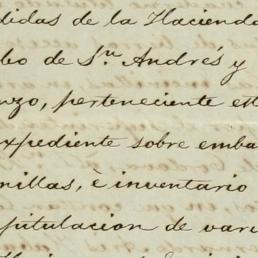 didas de la Hacienda
bo de Sn. Andrés y
nzo, perteneciente est
xpediente sobre emba
nillas, è inventario
pitulacion de vari